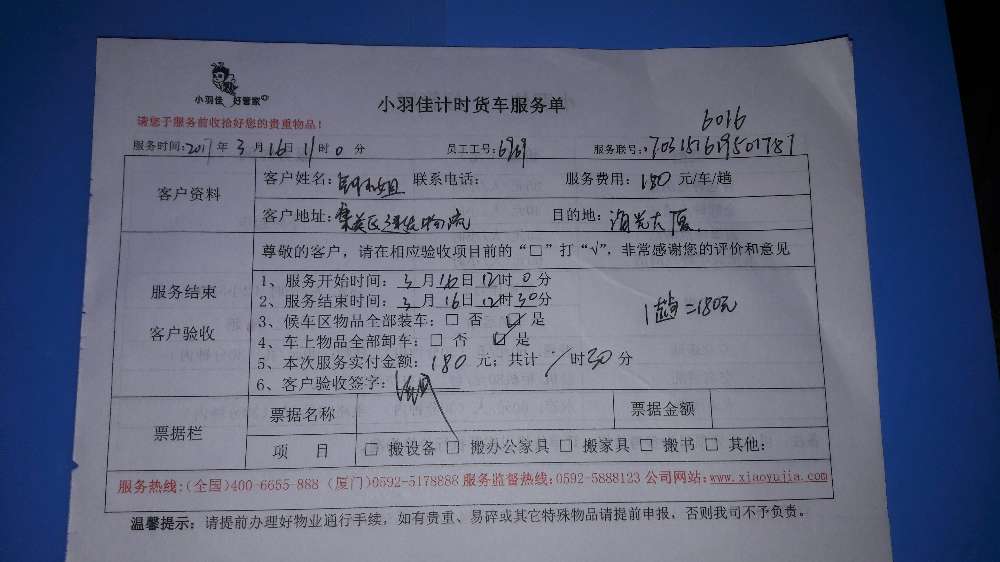 小羽佳 好管家
小羽佳计时货车服务单
请您于服务前收拾好您的贵重物品!
6016
服务时间:2017年3月16日11时0分 员工工号:6969 服务联号:703151619501787
客户资料
客户姓名: 小姐 联系电话: 服务费用:180元/车/趟
客户地址:集美区 物流 目的地:海光大厦
尊敬的客户，请在相应验收项目前的“□”打“√”，非常感谢您的评价和意见
服务结束
客户验收
1、服务开始时间:3月16日12时0分
2、服务结束时间:3月16日12时30分
3、候车区物品全部装车:□ 否 ☑ 是
4、车上物品全部卸车:□ 否 ☑ 是
5、本次服务实付金额:180元；共计/时30分
6、客户验收签字:
1趟=180元
票据栏
票据名称 票据金额
项 目 □ 搬设备 □ 搬办公家具 □ 搬家具 □ 搬书 □ 其他:
服务热线:(全国)400-6655-888 (厦门)0592-5178888 服务监督热线:0592-5888123 公司网站:www.xiaoyujia.com
温馨提示: 请提前办理好物业通行手续，如有贵重、易碎或其它特殊物品请提前申报，否则我司不予负责。